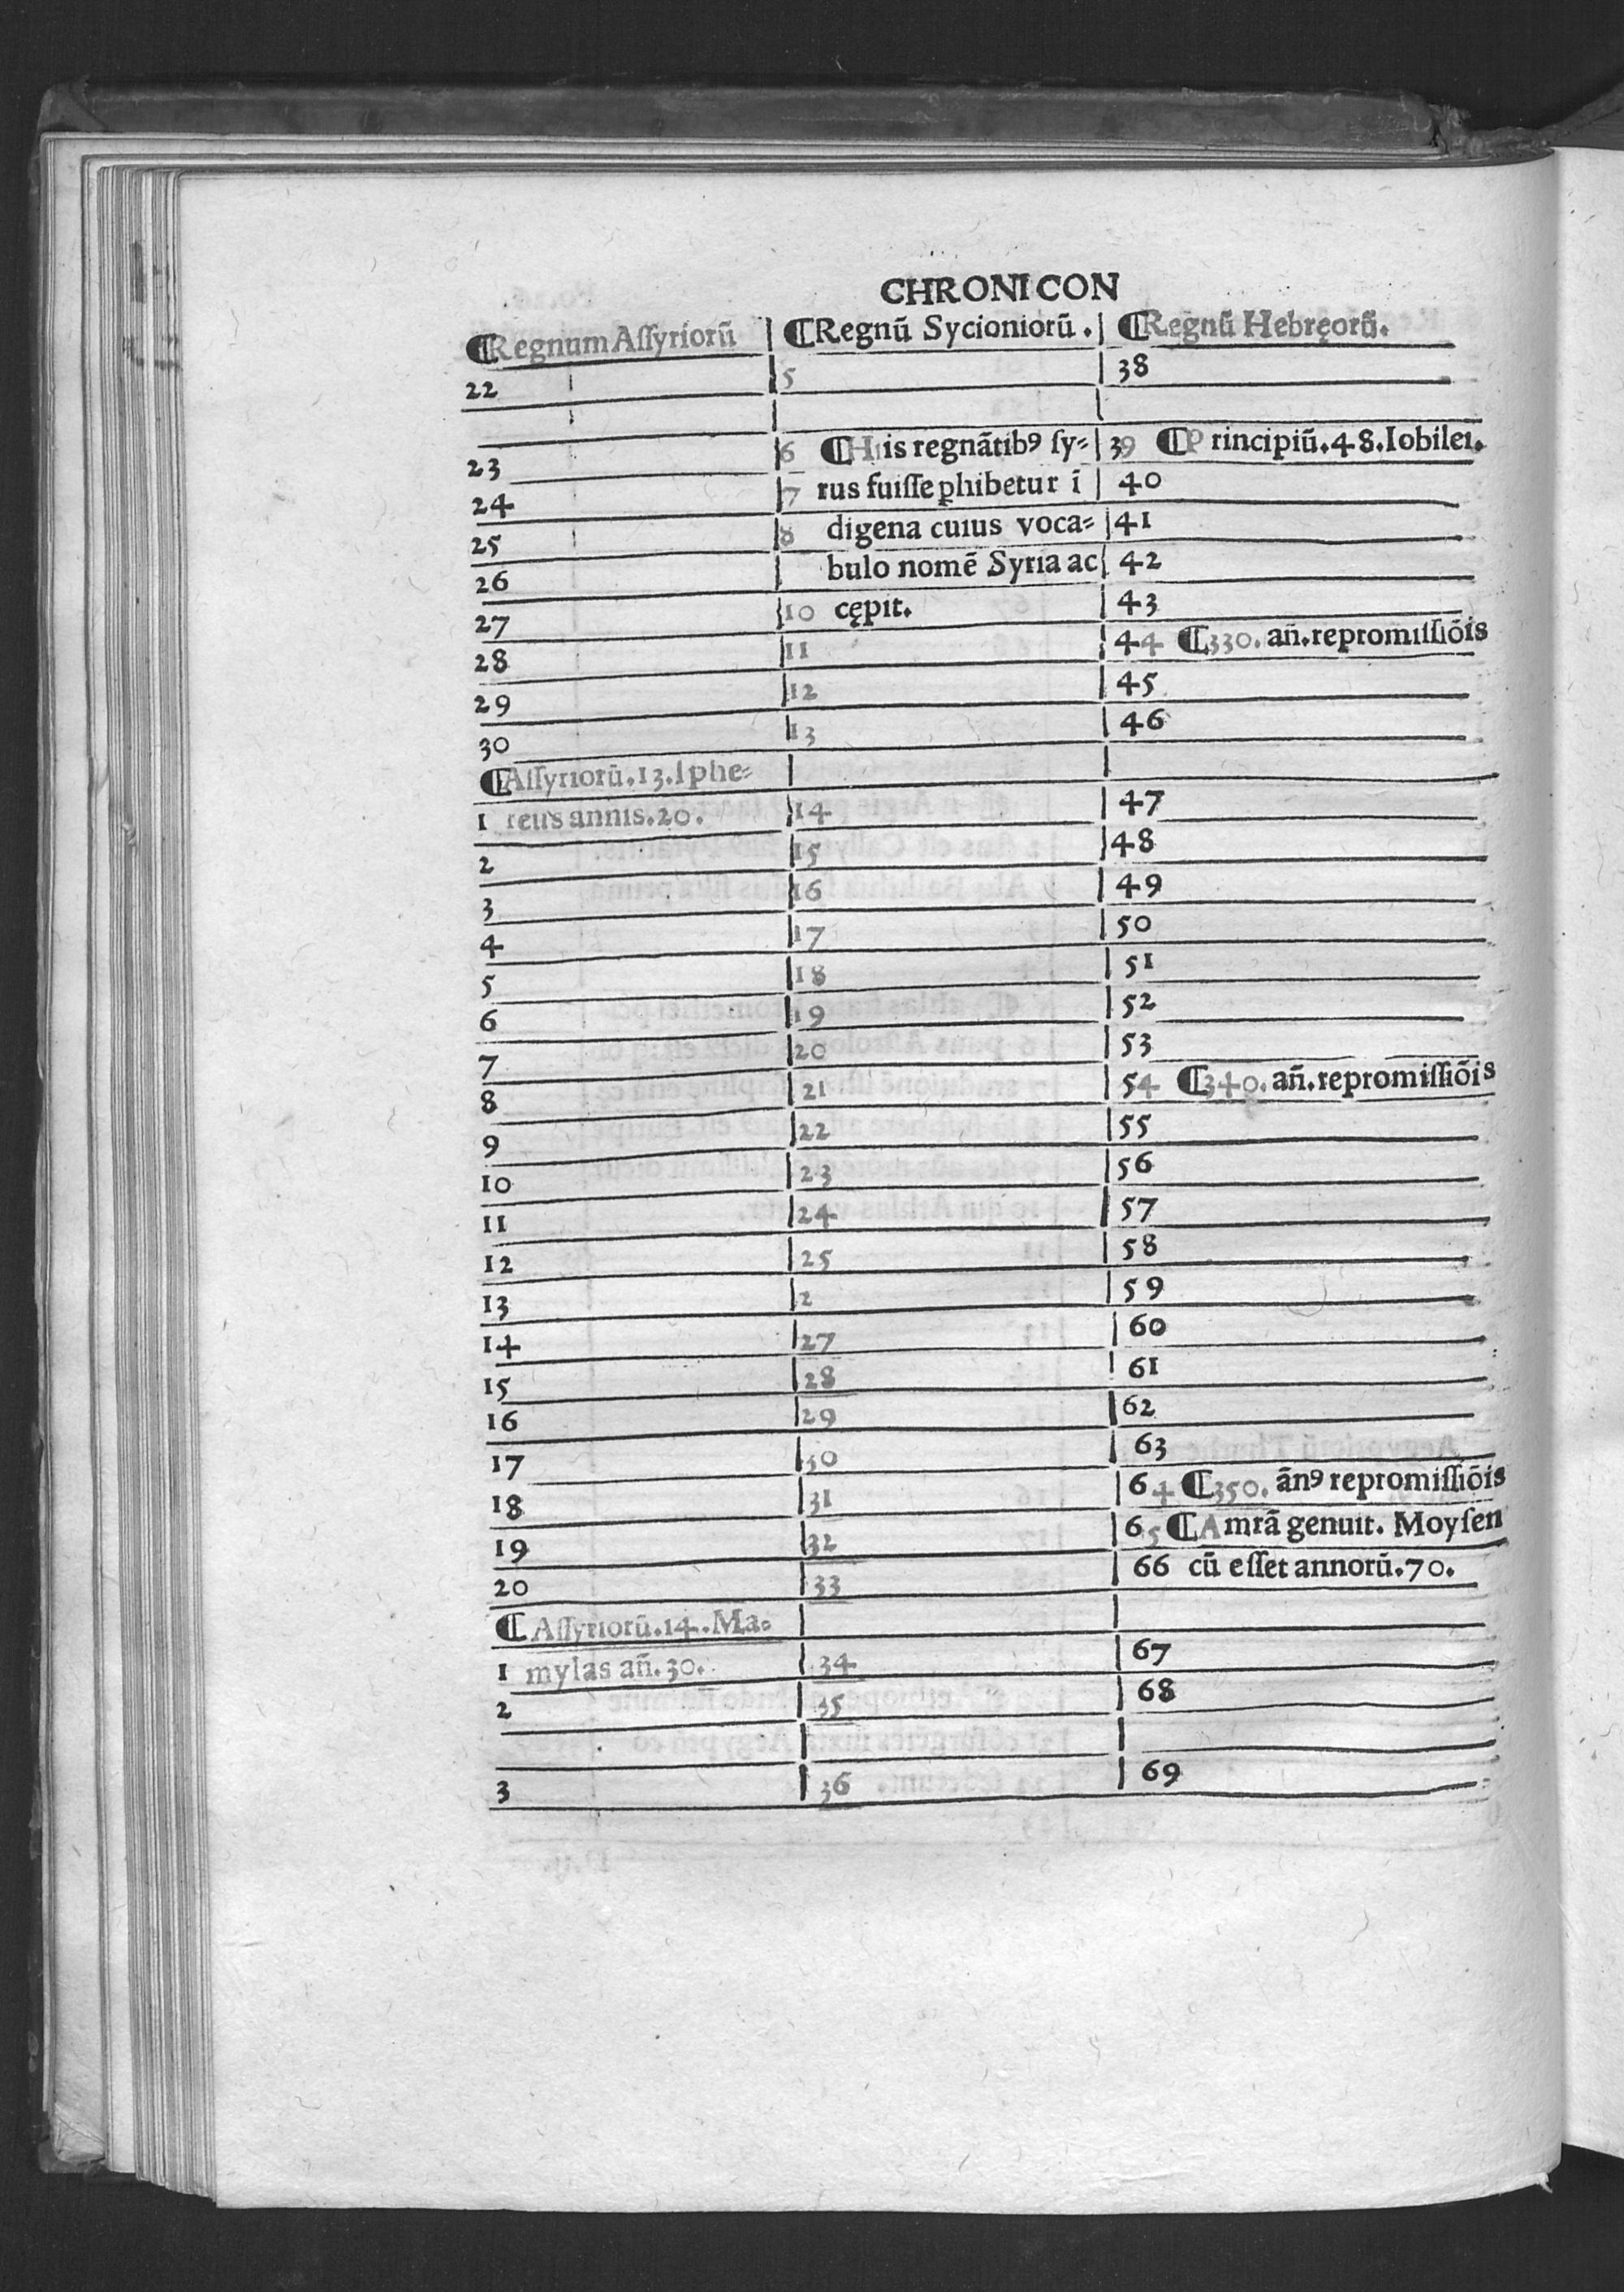 CHRONICON
¶Regnum Aſſyriorū | ¶Regnū Sycioniorū. | ¶Regnū Hebręorū.
22 | 5 | 38
23 | 6 ¶His regnātibꝰ ſy= | 39 ¶Principiū.48.Iobilei.
24 | 7 rus fuiſſe ꝑhibetur ī | 40
25 | 8 digena cuius voca= | 41
26 | bulo nomē Syria ac | 42
27 | 10 cępit. | 43
28 | 11 | 44 ¶330. an̄.repromiſſiōis
29 | 12 | 45
30 | 13 | 46
¶Aſſyriorū.13.Iphe=
1 reus annis.20. | 14 | 47
2 | 15 | 48
3 | 16 | 49
4 | 17 | 50
5 | 18 | 51
6 | 19 | 52
7 | 20 | 53
8 | 21 | 54 ¶340. an̄.repromiſſiōis
9 | 22 | 55
10 | 23 | 56
11 | 24 | 57
12 | 25 | 58
13 | 2 | 59
14 | 27 | 60
15 | 28 | 61
16 | 29 | 62
17 | 30 | 63
18 | 31 | 64 ¶350. ānꝰ repromiſſiōis
19 | 32 | 65 ¶Amrā genuit. Moyſen
20 | 33 | 66 cū eſſet annorū.70.
¶Aſſyriorū.14.Ma=
1 mylas an̄.30. | 34 | 67
2 | 35 | 68
3 | 36 | 69